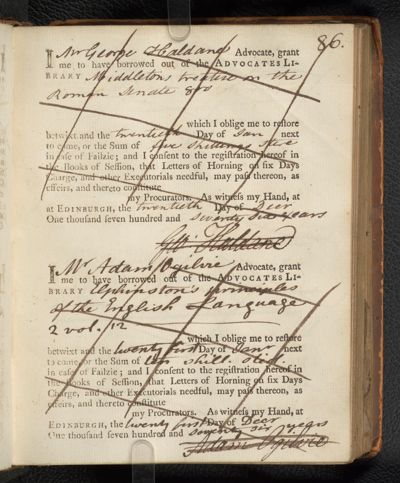 86.
I Mr George Haldane Advocate, grant
me to have borrowed out of the ADVOCATES LI-
BRARY Middleton's treatise on the
Roman Senate 8vo
which I oblige me to restore
betwixt and the twentieth Day of Jan next
to come, or the Sum of five shillings Ster
in case of Failzie; and I consent to the registration hereof in
the Books of Session, that Letters of Horning on six Days
Charge, and other Executorials needful, may pass thereon, as
effeirs, and thereto constitute
my Procurators. As witness my Hand, at
at EDINBURGH, the twentieth Day of Decr
One thousand seven hundred and seventy six years
Geo Haldane
I Mr Adam Ogilvie Advocate, grant
me to have borrowed out of the ADVOCATES LI-
BRARY Elphinston's principles
of the English Language
2 vol. 12
which I oblige me to restore
betwixt and the twenty first Day of Janr next
to come, or the Sum of ten shill. Ster
in case of Failzie; and I consent to the registration hereof in
the Books of Session, that Letters of Horning on six Days
Charge, and other Executorials needful, may pass thereon, as
effeirs, and thereto constitute
my Procurators. As witness my Hand, at
EDINBURGH, the twenty first Day of Decr
One thousand seven hundred and seventy six years
Adam Ogilvie